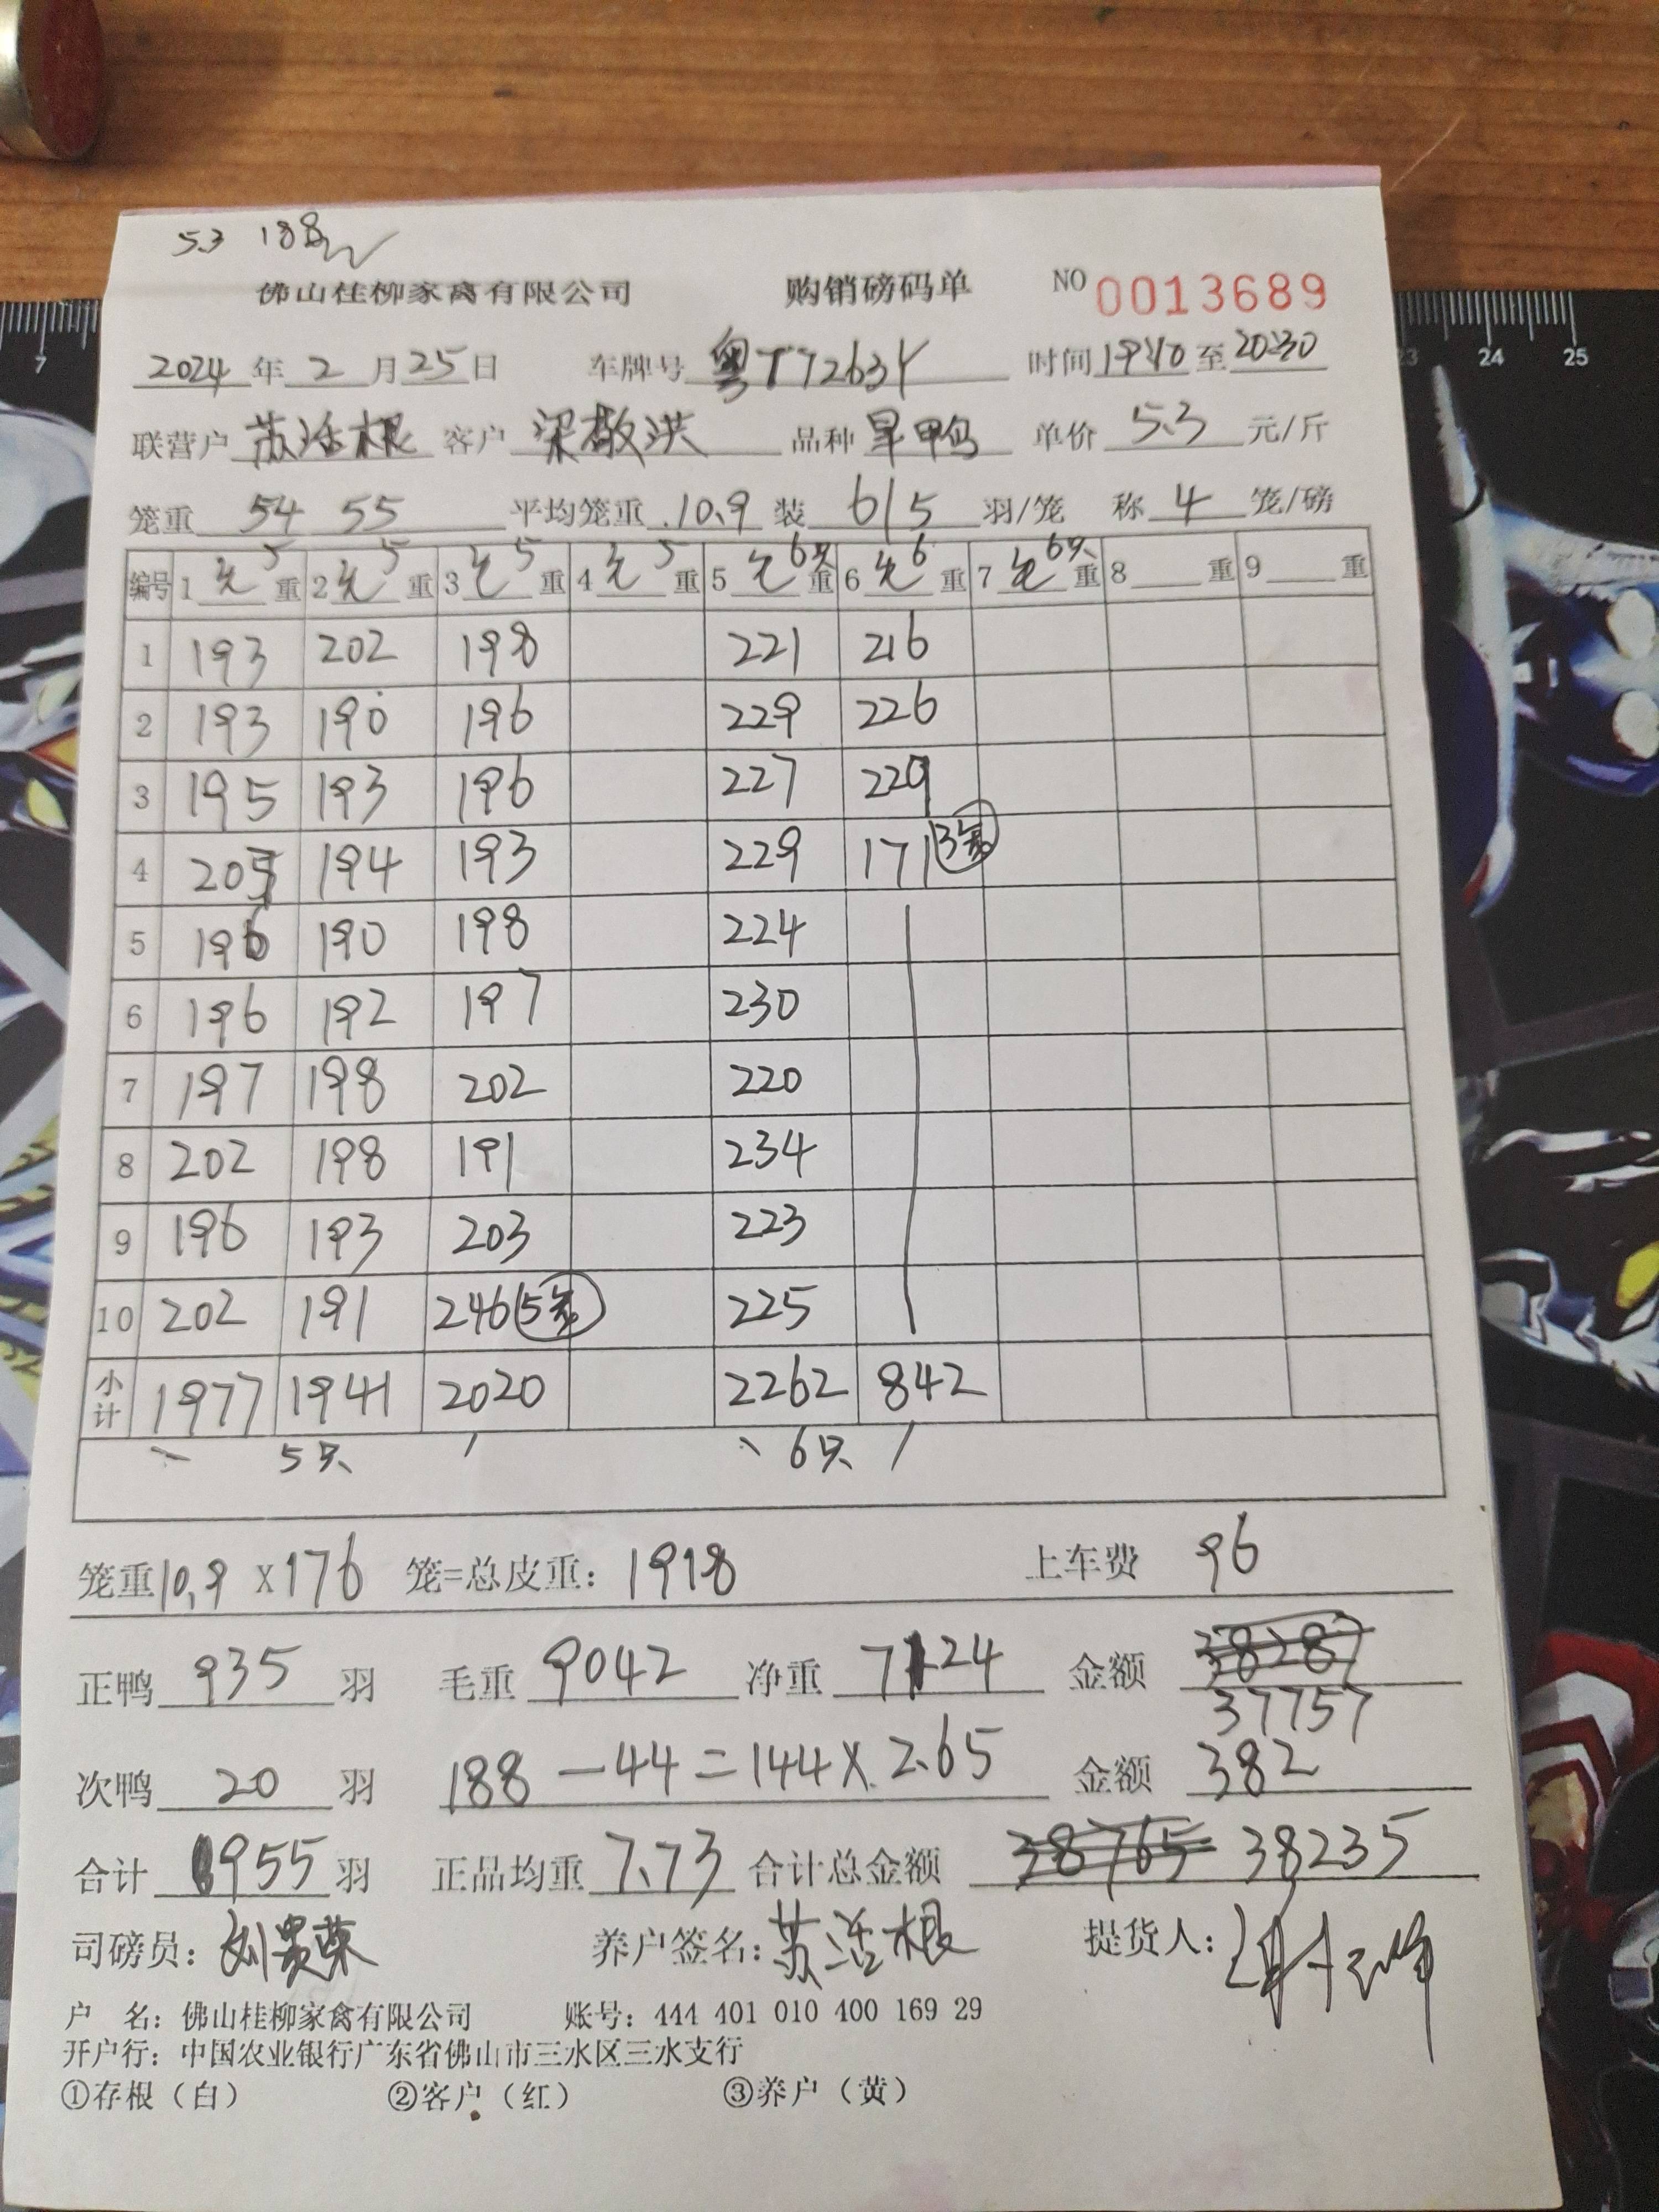 5.3 188
佛山桂柳家禽有限公司 购销磅码单 NO 0013689
2024 年 2 月 25 日 车牌号 粤T72634 时间 19:40 至 20:30
联营户 苏活根 客户 梁敬洪 品种 旱鸭 单价 5.3 元/斤
笼重 54 55 平均笼重 10.9 装 6/5 羽/笼 称 4 笼/磅
编号 1 毛5 重 2 毛5 重 3 毛5 重 4 毛5 重 5 毛6只 重 6 毛6 重 7 毛6只 重 8 重 9 重
1 193 202 198 221 216
2 193 190 196 229 226
3 195 193 196 227 229
4 205 194 193 229 171 3笼
5 196 190 198 224
6 196 192 197 230
7 197 198 202 220
8 202 198 191 234
9 196 193 203 223
10 202 191 246 5笼 225
小计 1977 1941 2020 2262 842
5只 6只
笼重 10.9 x 176 笼=总皮重: 1918 上车费 96
正鸭 935 羽 毛重 9042 净重 7124 金额 38287
37757
次鸭 20 羽 188-44=144x2.65 金额 382
合计 955 羽 正品均重 7.73 合计总金额 38765 38235
司磅员: 刘贵荣 养户签名: 苏活根 提货人:
户 名: 佛山桂柳家禽有限公司 账号: 444 401 010 400 169 29
开户行: 中国农业银行广东省佛山市三水区三水支行
①存根（白） ②客户（红） ③养户（黄）
7 23 24 25